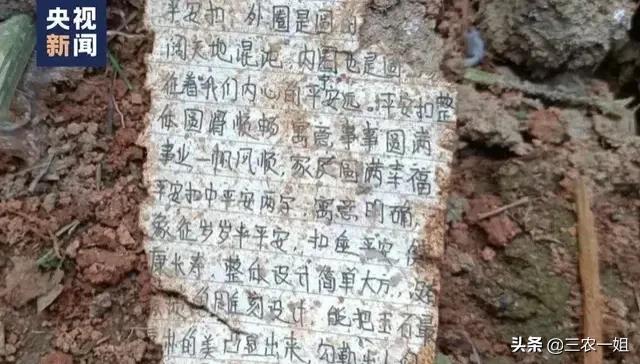 央视新闻
平安扣，外圈是圆的
阔天地混沌，内圈也是圆
征着我们内心的平安远。平安扣整
体圆润顺畅 寓意事事圆满
事业一帆风顺，家庭圆满幸福
平安扣中平安两字，寓意明确，
象征岁岁年平安，扣住平安 健
康长寿，整体设计简单大方，没
的雕刻设计，能把玉石最
的美凸显出来，勾勒出
头条 @三农一姐